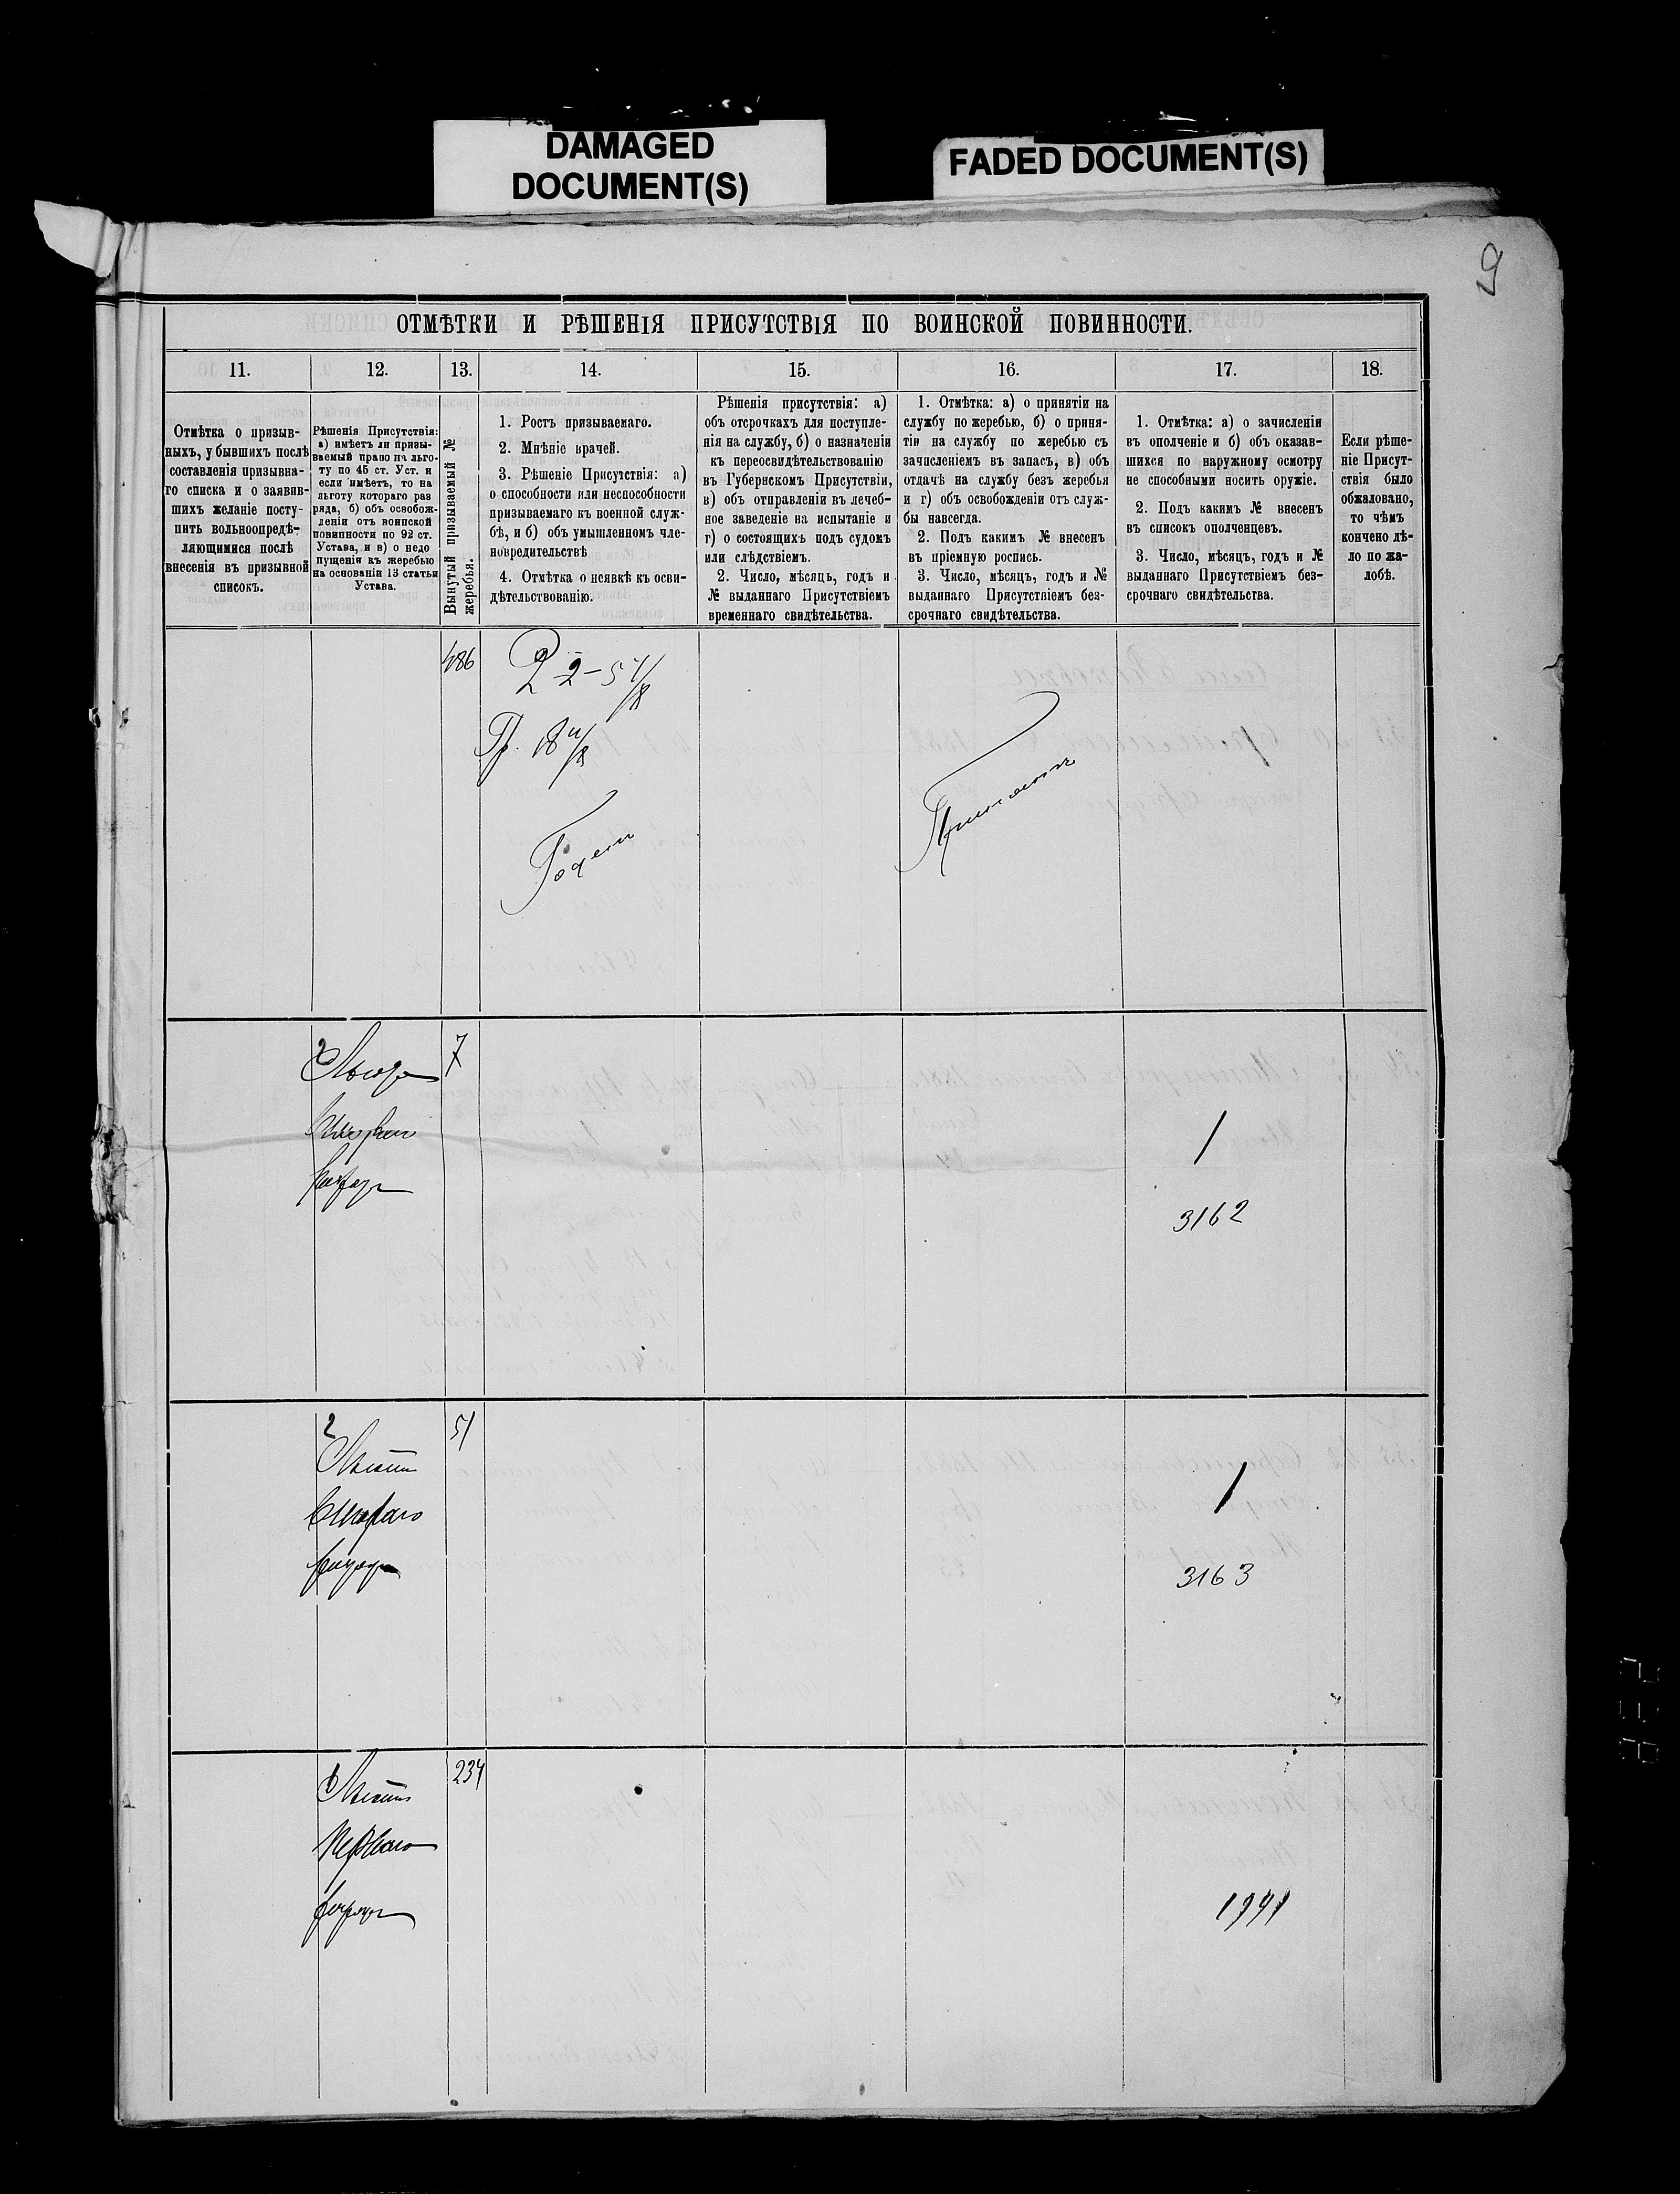 DAMAGED
DOCUMENT(S)
FADED DOCUMENT(S)
9
ОТМѢТКИ И РѢШЕНІЯ ПРИСУТСТВІЯ ПО ВОИНСКОЙ ПОВИННОСТИ.
11.
12.
13.
14.
15.
16.
17.
18.
Отмѣтка о призыв-
ныхъ, убывшихъ послѣ
составленія призывна-
го списка и о заявив-
шихъ желаніе посту-
пить вольноопредѣ-
ляющимися послѣ
внесенія въ призывной
списокъ.
Рѣшенія Присутствія:
а) имѣетъ ли призы-
ваемый право на льго-
ту по 45 ст. Уст. и
если имѣетъ, то на
льготу котораго раз
ряда, б) объ освобож-
деніи отъ воинской
повинности по 92 ст.
Устава, и в) о недо
пущеніи къ жеребью
на основаніи 13 статьи
Устава.
Вынутый призываемый №
жеребья.
1. Ростъ призываемаго.
2. Мнѣніе врачей.
3. Рѣшеніе Присутствія: а)
о способности или неспособности
призываемаго къ военной служ-
бѣ, и б) объ умышленномъ чле-
новредительствѣ
4. Отмѣтка о неявкѣ къ осви-
дѣтельствованію.
Рѣшенія присутствія: а)
объ отсрочкахъ для поступле-
нія на службу, б) о назначеніи
къ переосвидѣтельствованію
въ Губернскомъ Присутствіи,
в) объ отправленіи въ лечеб-
ное заведеніе на испытаніе и
г) о состоящихъ подъ судомъ
или слѣдствіемъ.
2. Число, мѣсяцъ, годъ и
№ выданнаго Присутствіемъ
временнаго свидѣтельства.
1. Отмѣтка: а) о принятіи на
службу по жеребью, б) о приня-
тіи на службу по жеребью съ
зачисленіемъ въ запасъ, в) объ
отдачѣ на службу безъ жеребья
и г) объ освобожденіи отъ служ-
бы навсегда.
2. Подъ какимъ № внесенъ
въ пріемную роспись.
3. Число, мѣсяцъ, годъ и №
выданнаго Присутствіемъ без-
срочнаго свидѣтельства.
1. Отмѣтка: а) о зачисленіи
въ ополченіе и б) объ оказав-
шихся по наружному осмотру
не способными носить оружіе.
2. Подъ какимъ № внесенъ
въ списокъ ополченцевъ.
3. Число, мѣсяцъ, годъ и №
выданнаго Присутствіемъ без-
срочнаго свидѣтельства.
Если рѣше-
ніе Присут-
ствія было
обжаловано,
то чѣмъ
кончено дѣ-
ло по жа-
лобѣ.
486
Р 2-5 4/8
Гр. 18 4/8
Годенъ
Принятъ
2
7
Льгота
Втораго
разряда
1
3162
2
51
Льгота
Втораго
разряда
1
3163
1
234
Льгота
Перваго
разряда
1941